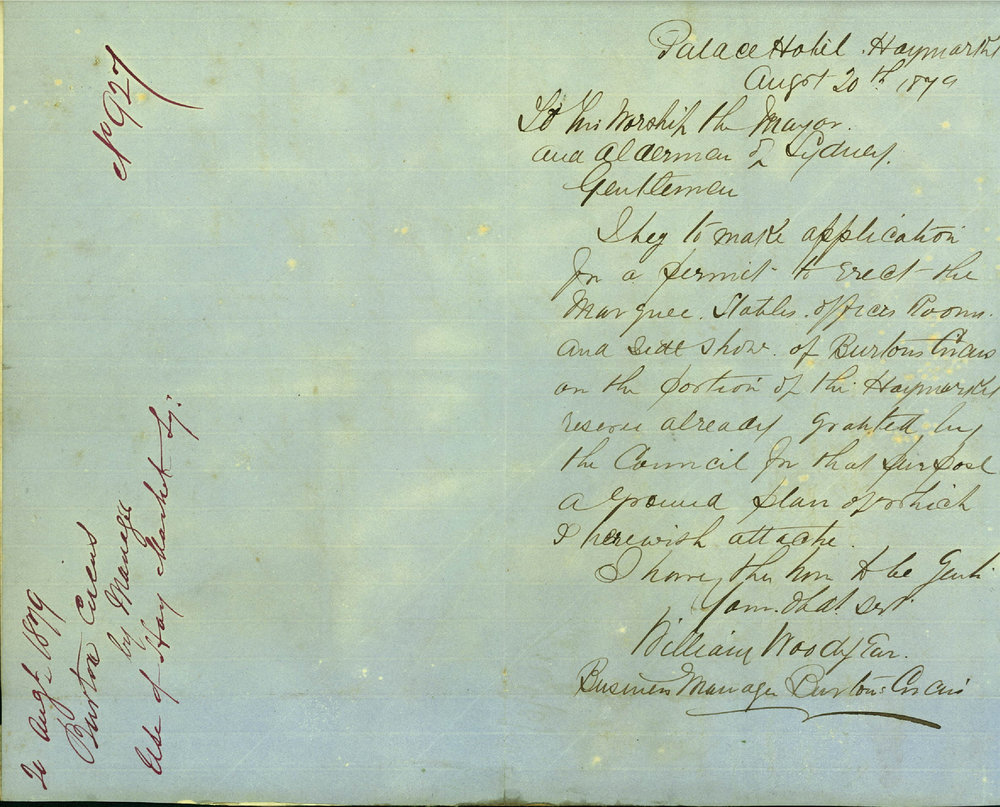 No 927
20 Augt 1879
Burton Circus
by Manager
Use of Hay Market Sq.
Palace Hotel. Haymarket
Augst 20th 1879
To His Worship the Mayor.
and Aldermen of Sydney.
Gentlemen
I beg to make application
for a permit to erect the
Marquee. Stables. offices Rooms.
and Side Show. of Burtons Circus
on the portion of the Haymarket
reserve already granted by
the Council for that purpose
a ground plan of which
I herewish attache.
I have the hon to be Gentn
your. Obdt Servt.
William Woodyear.
Business Manager Burtons Circus